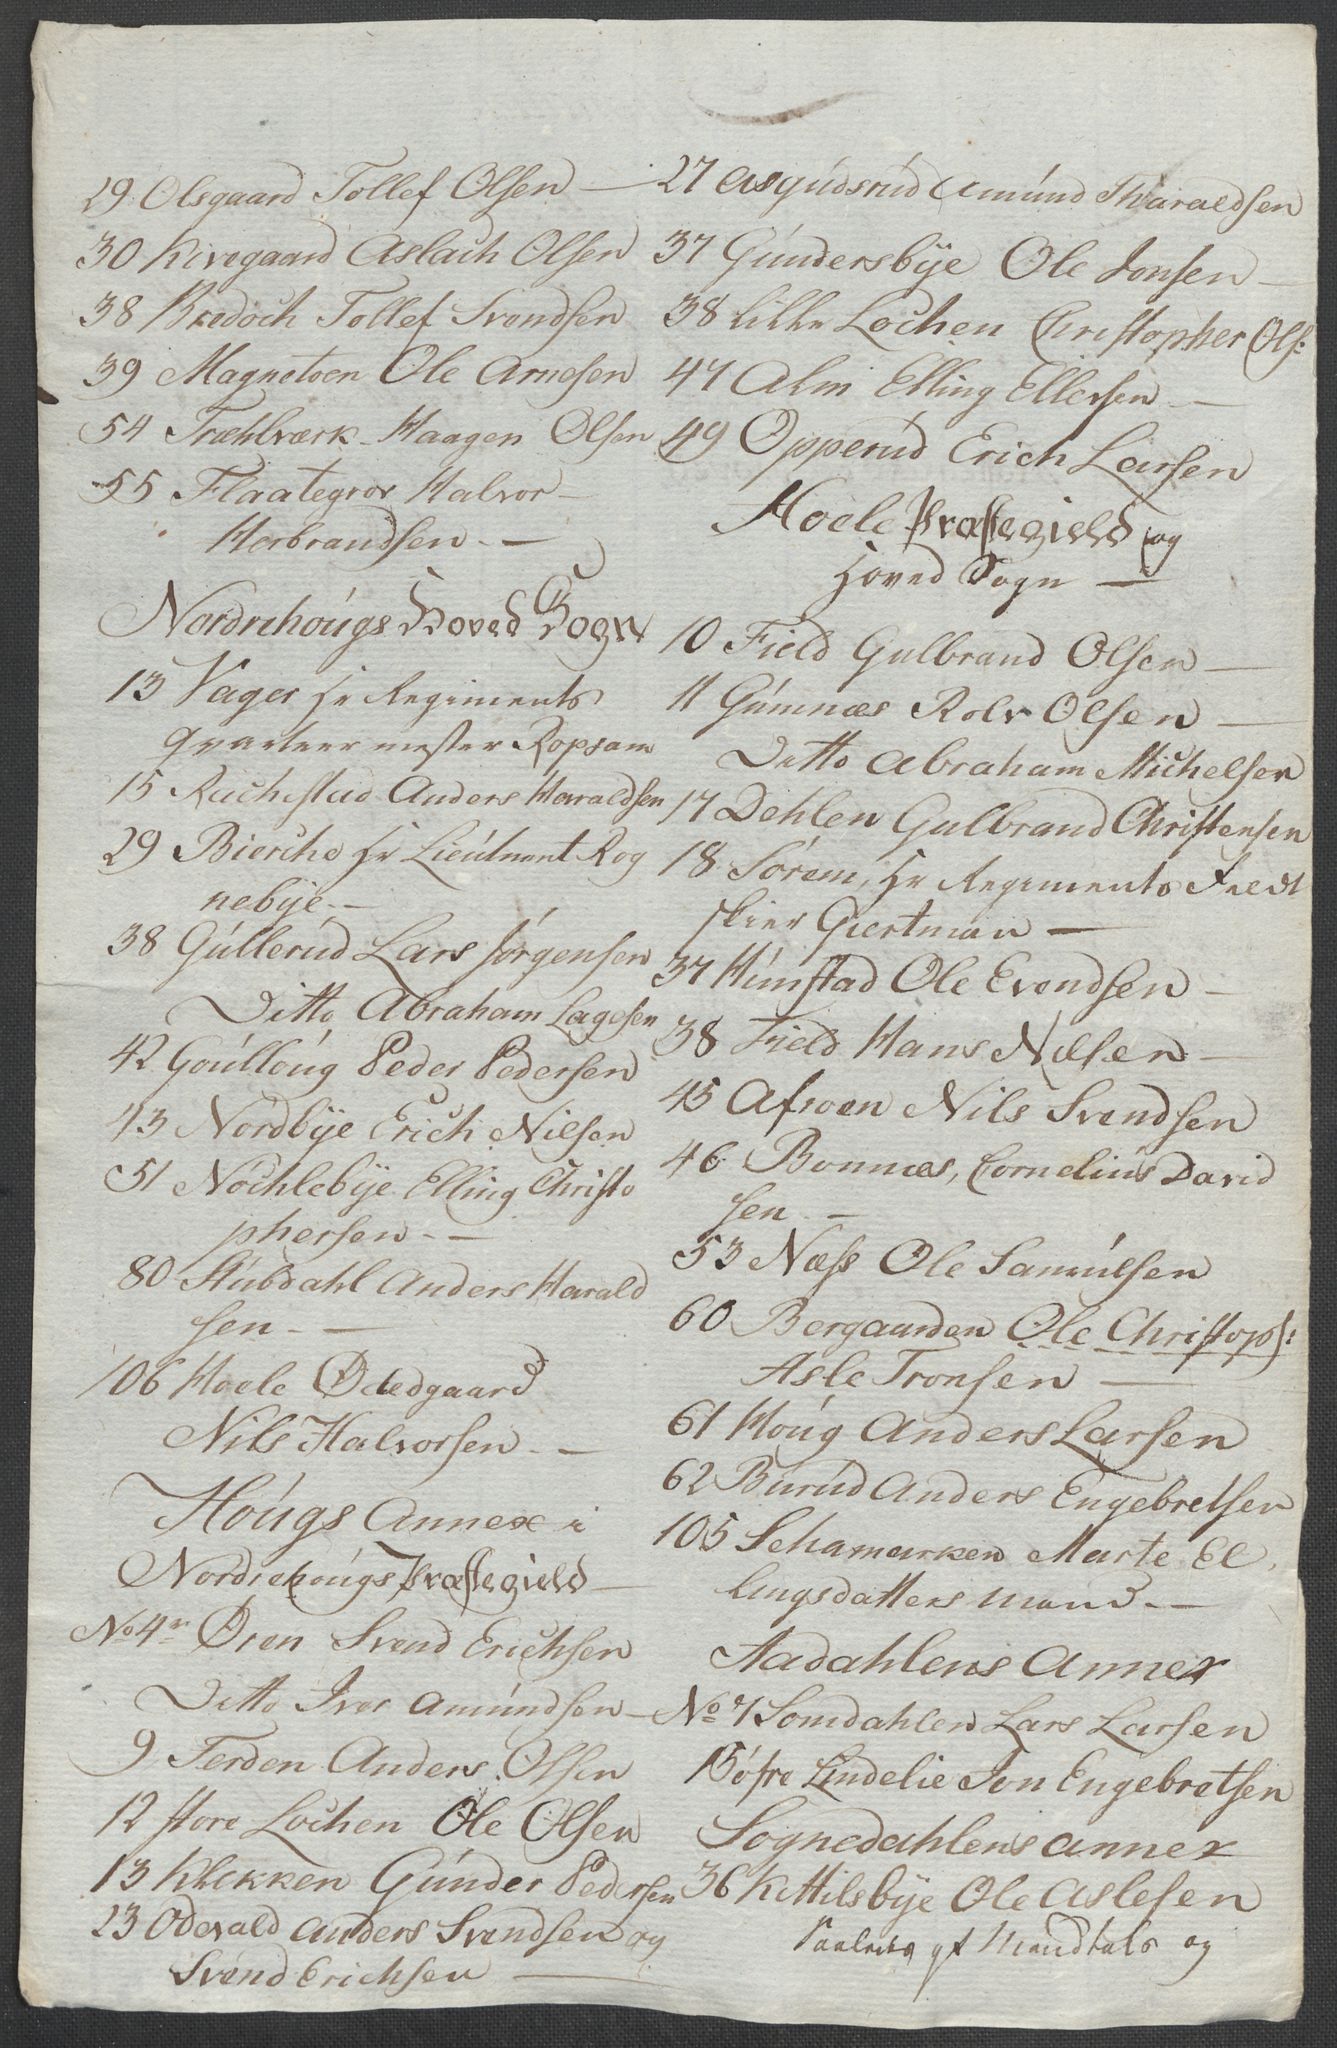 29 Olsgaard Tollef Olsen —
30 Kirvegaard Aslach Olsen
38 Bredoch Tollef Svendsen
39 Magnetoen Ole Arnesen
54 Træhlværk Haagen Olsen
55 Flaategrov Halvor
Herbrandsen. —
Nordrehóugs Hoved Sogn
13 Vager Hr Regiments
Qvarteermester Ropsam
15 Ruchstad Anders Haraldsen
29 Bierche Hr Lieutnant Rog
nebÿe. —
38 Gúllerúd Lars Jórgensen
Ditto Abraham Lagesen
42 Goúlloúg Peder Pedersen
43 Nordbÿe Erich Nilsen
51 Nöchlebÿe Elling Christo
phersen. —
80 Stúbdahl Anders Harald
sen. —
106 Hoele Ødedgaard
Nils Halvorsen. —
Hóugs Annex i
Nordrehóugs Præstegield —
No 4 Øren Svend Erichsen
Ditto Iver Amúndsen —
9 Ferden Anders Olsen
12 store Lochen Ole Olsen
13 Klekken Gúnder Pedersen
23 Odevald Anders Svendsen og
Svend Erichsen —
27 Asgúdsrúd Amúnd Tharaldsen
37 Gúndersbÿe Ole Jonsen —
38 Lille Lochen Christopher Ols:
47 Alm Elling Ellersen —
49 Opperúd Erich Larsen
Hoele Præstegield og
Hoved Sogn —
10 Field Gulbrand Olsen —
11 Gúmnæs Rolv Olsen —
Ditto Abraham Michelsen
17 Dehlen Gulbrand Christensen
18 Sörem, Hr Regiments Feldt
skier Giertman —
37 Húnstad Ole Evendsen —
38 Field Hans Nilsen —
45 Afsoen Nils Svendsen
46 Bonnæs, Cornelius David
sen —
53 Næss Ole Samúelsen
60 Bergaarden Ole Christops:
Asle Tronsen —
61 Hóug Anders Larsen
62 Búrúd Anders Engebretsen
105 Schamarken Marte El
lingsdatters mand. —
Aadahlens Annex
No 7 Somdahlen Lars Larsen
15 öfre Lindelie Jon Engebretsen
Sognedahlens Annex
36 Kittilsbÿe Ole Aslesen
Mandtals og